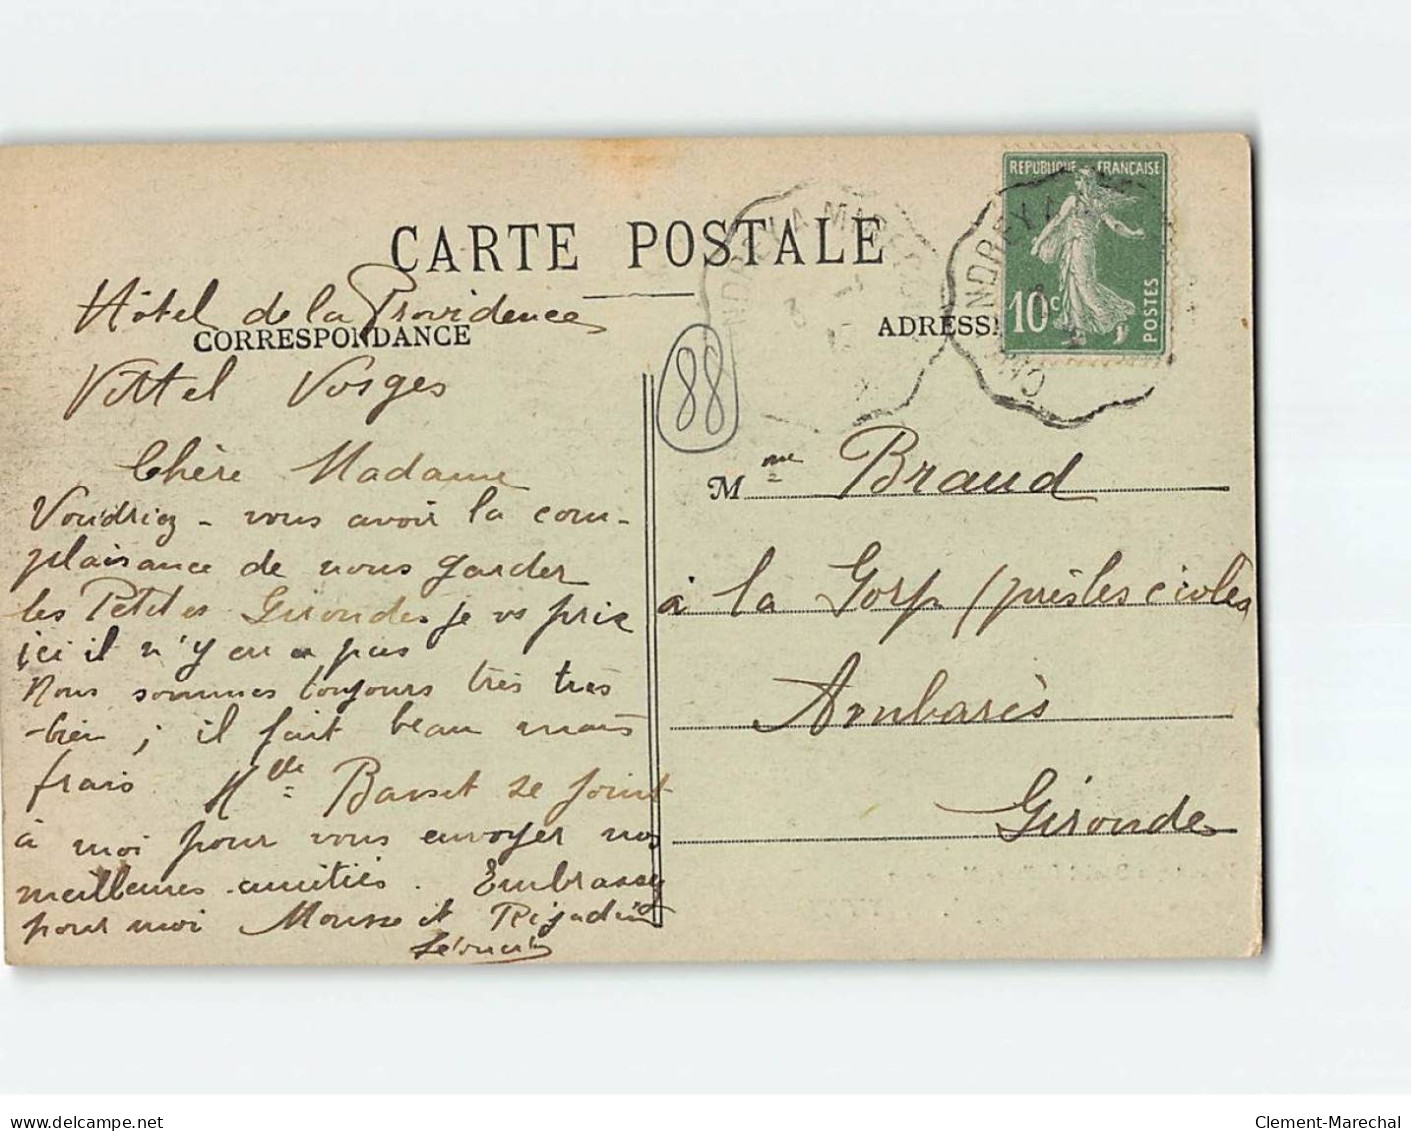 CARTE POSTALE
Hôtel de la Providence
CORRESPONDANCE
Vittel Vosges
Chère Madame
Voudriez-vous avoir la com-
plaisance de nous garder
les Petites Girondes je vs prie
ici il n'y en a pas
Nous sommes toujours très très
bien ; il fait beau mais
frais. Mlle Basset se joint
à moi pour vous envoyer nos
meilleures amitiés. Embrassez
pour moi Mousse et Rigadin
88
ADRESSE
REPUBLIQUE FRANÇAISE
10c
POSTES
Mme Braud
à la Gorp (près les écoles
Ambarès
Gironde
delcampe.net
Clement-Marechal